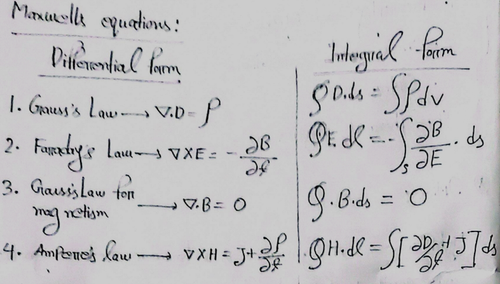 Maxwells equations:
Differential form
1. Gauss's Law → ∇.D = ρ
2. Faraday's Law → ∇XE = -∂B/∂t
3. Gauss's Law for
magnetism → ∇.B = 0
4. Ampere's law → ∇XH = J+∂ρ/∂t
Integrial form
∮D.ds = ∫ρdv
∮E.dl = -∫s ∂B/∂E . ds
∮.B.ds = 0
∮H.dl = ∫[∂D/∂t + J] ds